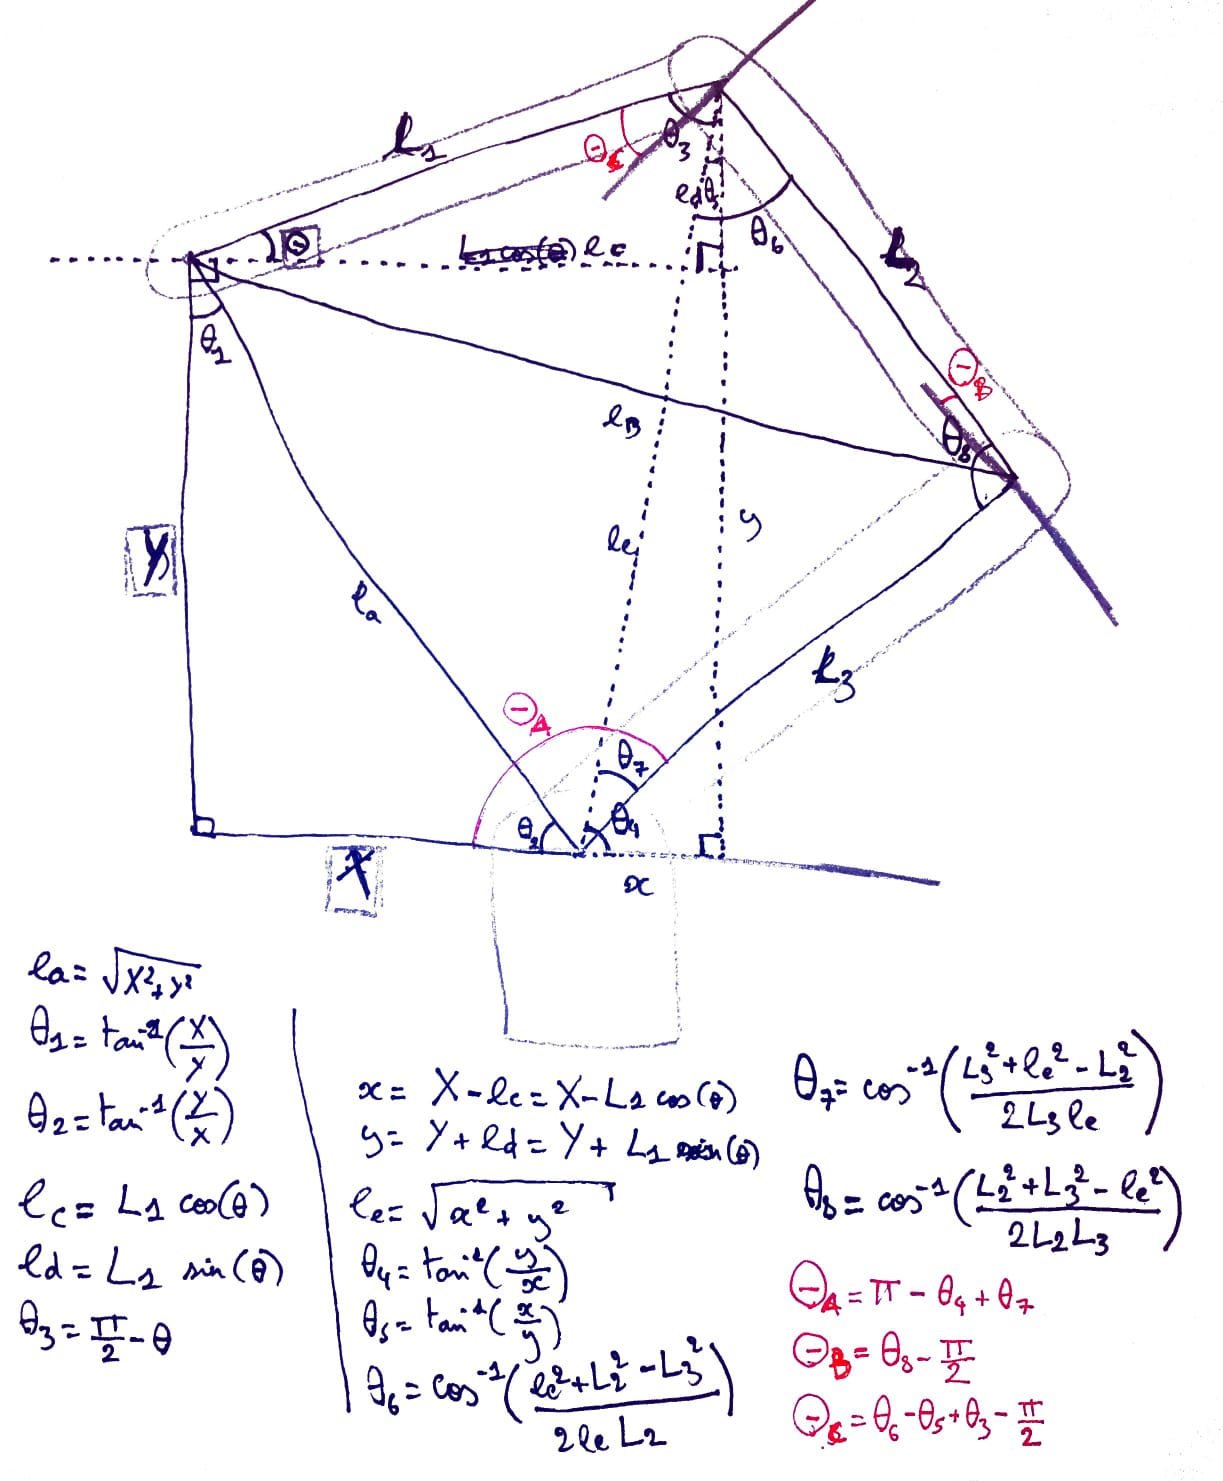 L₁
Θc
θ₃
ld
θ₅
θ₆
θ
lc
L₂
θ₁
ΘB
θ₈
lB
le
y
Y
la
L₃
ΘA
θ₇
θ₂
θ₄
X
x
la = √X²+Y²
θ₁ = tan⁻¹(X/Y)
θ₂ = tan⁻¹(Y/X)
lc = L₁ cos(θ)
ld = L₁ sin(θ)
θ₃ = π/2 - θ
x = X - lc = X - L₁ cos(θ)
y = Y + ld = Y + L₁ sin(θ)
le = √x²+y²
θ₄ = tan⁻¹(y/x)
θ₅ = tan⁻¹(x/y)
θ₆ = cos⁻¹(le²+L₂²-L₃² / 2 le L₂)
θ₇ = cos⁻¹(L₃²+le²-L₂² / 2L₃ le)
θ₈ = cos⁻¹(L₂²+L₃²-le² / 2L₂L₃)
ΘA = π - θ₄ + θ₇
ΘB = θ₈ - π/2
Θc = θ₆ - θ₅ + θ₃ - π/2